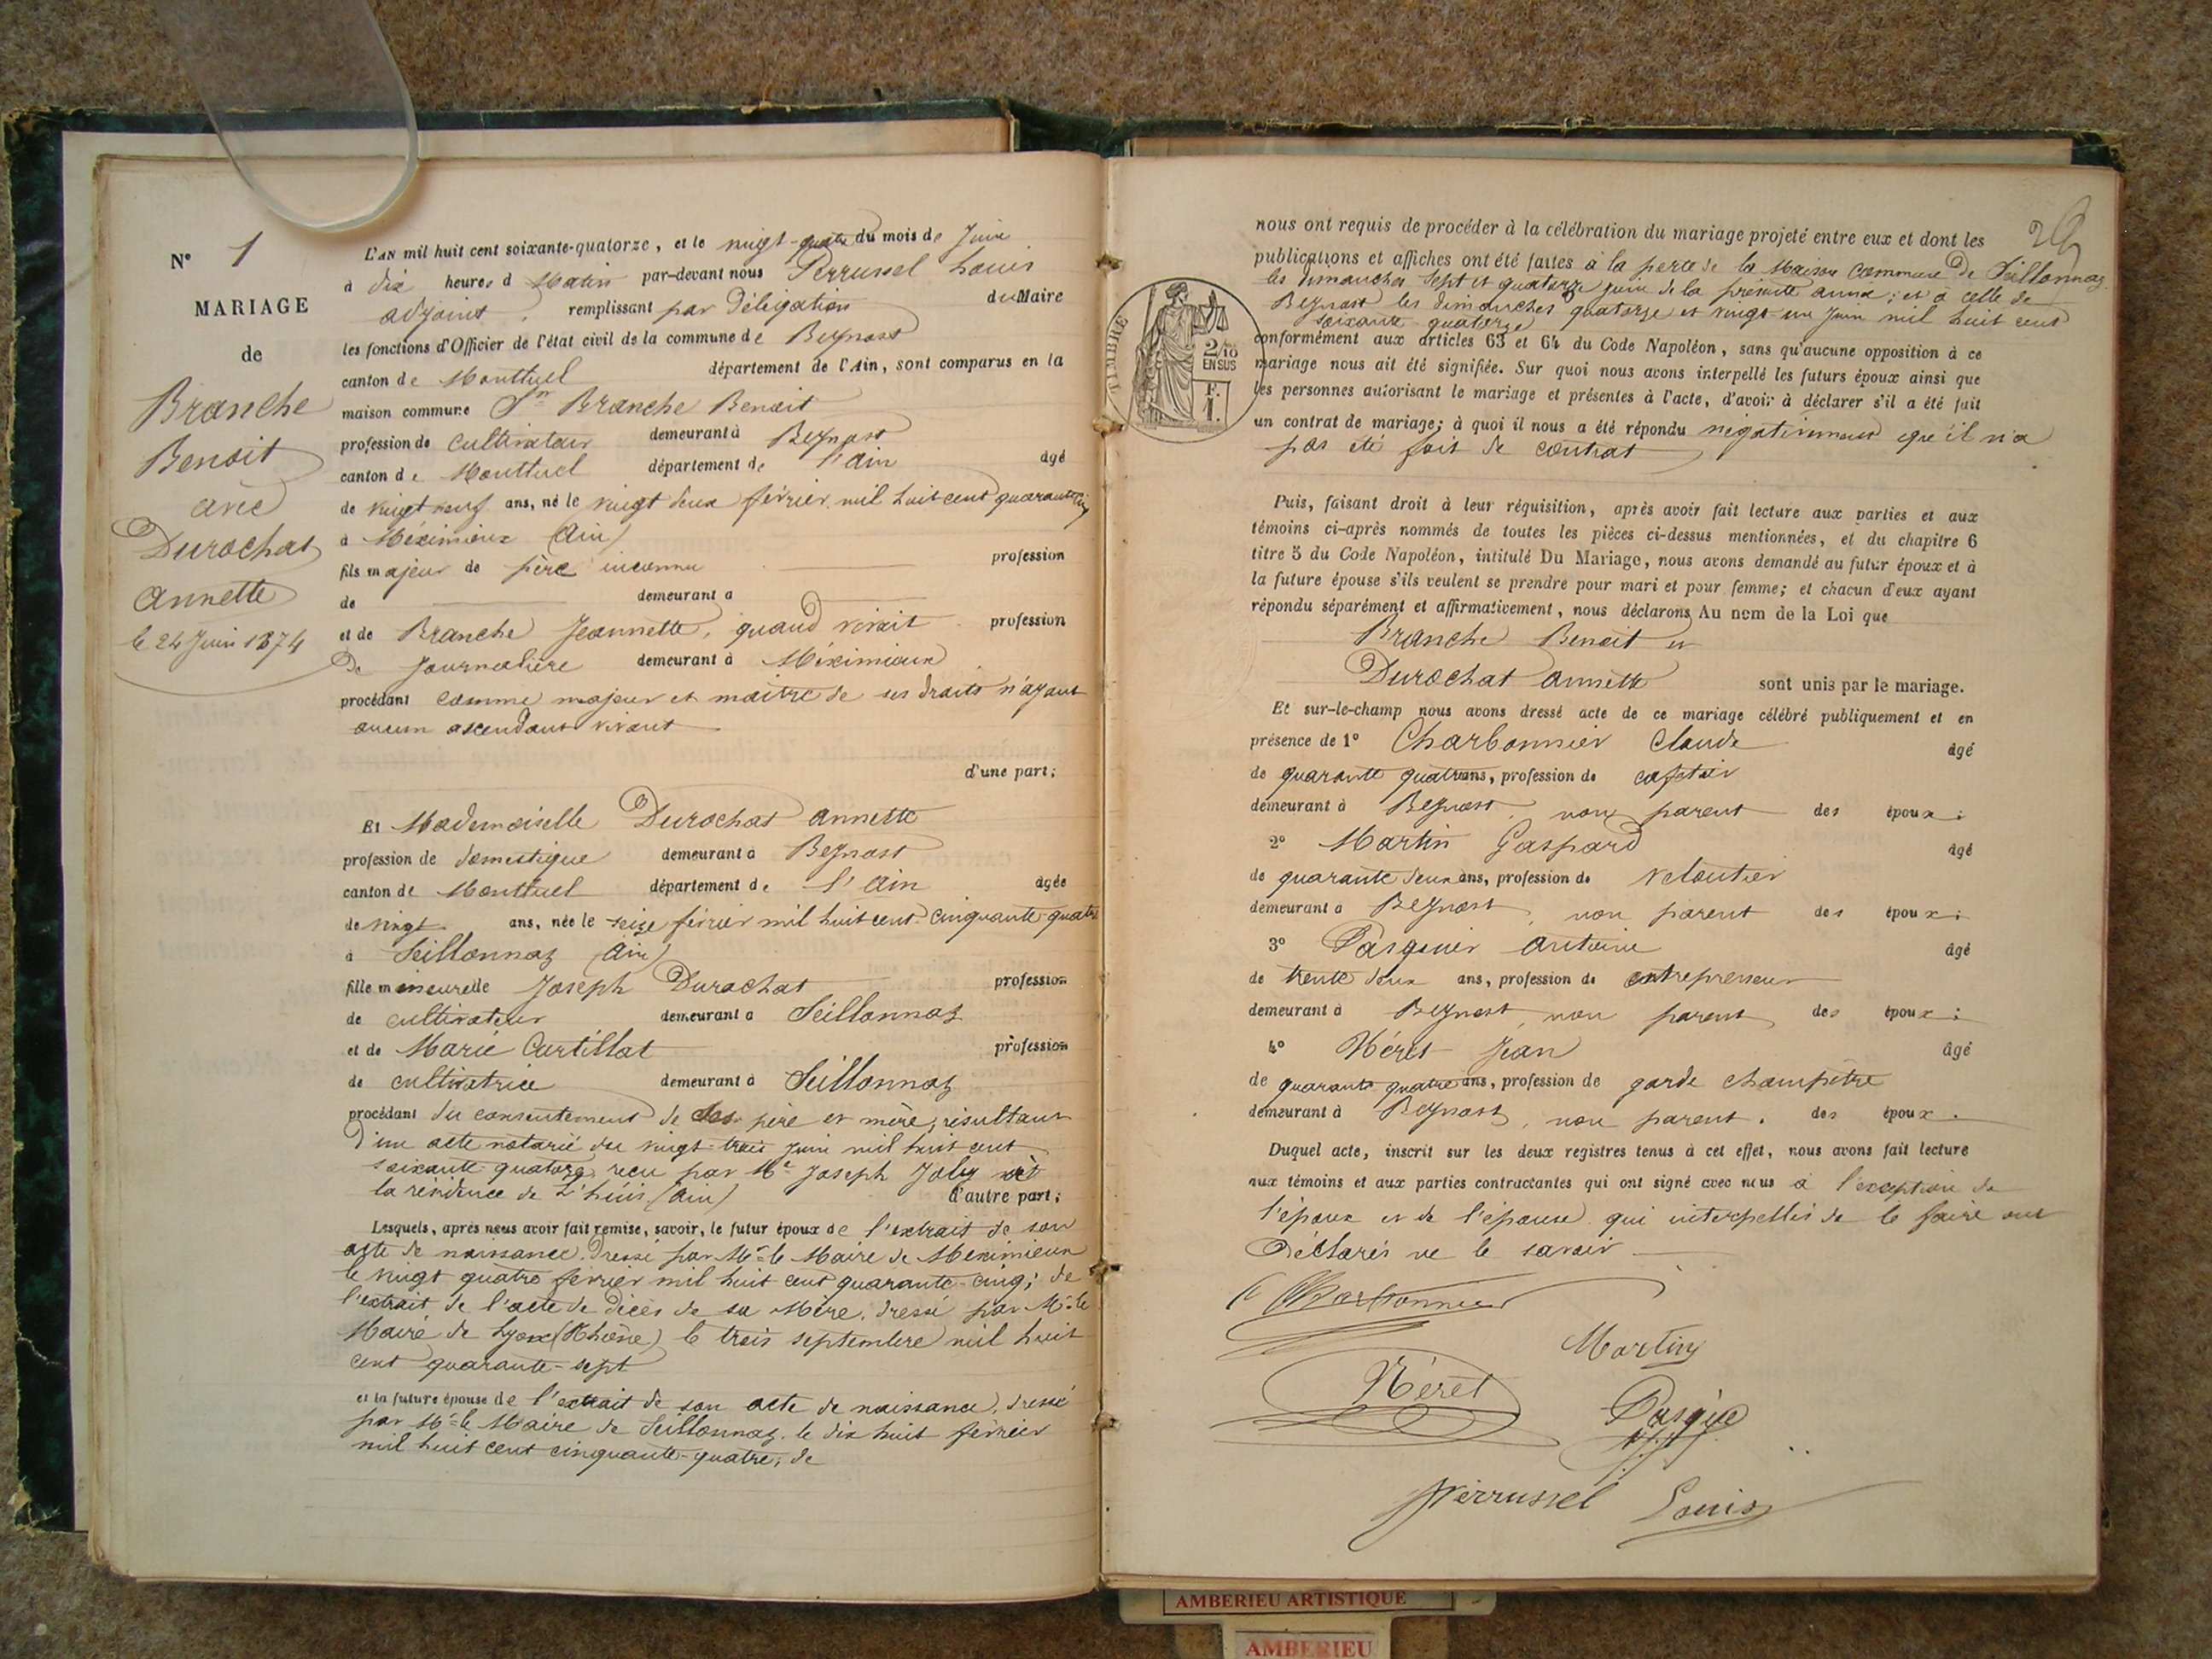 N° 1
MARIAGE
de
Branche
Benoit
avec
Durochat
Annette
le 24 Juin 1874
L'AN mil huit cent soixante-quatorze, et le vingt-quatre du mois de Juin
à dix heures d Matin par-devant nous Perrussel Louis
adjoint, remplissant par Délégation du Maire
les fonctions d'Officier de l'état civil de la commune de Beynost
canton de Montluel département de l'Ain, sont comparus en la
maison commune Sr Branche Benoit
profession de cultivateur demeurant à Beynost
canton de Montluel département de l'Ain âgé
de vingt neuf ans, né le vingt deux février mil huit cent quarante cinq
à Méximieux (Ain)
fils majeur de père inconnu profession
de demeurant à
et de Branche Jeannette, quand vivait profession
De Journalière demeurant à Méximieux
procédant comme majeur et maître de ses droits n'ayant
aucun ascendant vivant
d'une part;
Et Mademoiselle Durochat Annette
profession de domestique demeurant à Beynost
canton de Montluel département de l'Ain âgée
de vingt ans, née le seize février mil huit cent cinquante-quatre
à Seillonnaz (Ain)
fille mineure de Joseph Durochat profession
de cultivateur demeurant à Seillonnaz
et de Marie Curtillat profession
de cultivatrice demeurant à Seillonnaz
procédant du consentement de ses père et mère, résultant
d'un acte notarié du vingt-trois juin mil huit cent
soixante-quatorze reçu par Me Joseph Joly
la résidence de L'huis (Ain) d'autre part;
Lesquels, après nous avoir fait remise, savoir, le futur époux de l'extrait de son
acte de naissance, Dressé par Mr le Maire de Meximieux
le vingt quatre février mil huit cent quarante-cinq; de
l'extrait de l'acte de décès de sa Mère, dressé par Mr le
Maire de Lyon (Rhône) le trois septembre mil huit
cent quarante-sept
et la future épouse de l'extrait de son acte de naissance, dressé
par Mr le Maire de Seillonnaz, le dix huit février
mil huit cent cinquante-quatre; de
26
nous ont requis de procéder à la célébration du mariage projeté entre eux et dont les
publications et affiches ont été faites à la porte de la Maison Commune De Seillonnaz
les dimanches sept et quatorze juin de la présente année; et à celle de
Beynost les dimanches quatorze et vingt-un Juin mil huit cent
soixante-quatorze
conformément aux articles 63 et 64 du Code Napoléon, sans qu'aucune opposition à ce
mariage nous ait été signifiée. Sur quoi nous avons interpellé les futurs époux ainsi que
les personnes autorisant le mariage et présentes à l'acte, d'avoir à déclarer s'il a été fait
un contrat de mariage; à quoi il nous a été répondu négativement que il n'a
pas été fait de contrat
TIMBRE
2/10
EN SUS
F.
1.
Puis, faisant droit à leur réquisition, après avoir fait lecture aux parties et aux
témoins ci-après nommés de toutes les pièces ci-dessus mentionnées, et du chapitre 6
titre 5 du Code Napoléon, intitulé Du Mariage, nous avons demandé au futur époux et à
la future épouse s'ils veulent se prendre pour mari et pour femme; et chacun d'eux ayant
répondu séparément et affirmativement, nous déclarons Au nom de la Loi que
Branche Benoit et
Durochat Annette sont unis par le mariage.
Et sur-le-champ nous avons dressé acte de ce mariage célébré publiquement et en
présence de 1° Charbonnier Claude âgé
de quarante quatre ans, profession de cafetier
demeurant à Beynost, non parent des époux;
2° Martin Gaspard âgé
de quarante deux ans, profession de veloutier
demeurant à Beynost, non parent des époux;
3° Pasquier Antoine âgé
de trente deux ans, profession de entrepreneur
demeurant à Beynost, non parent des époux;
4° Néret Jean âgé
de quarante quatre ans, profession de garde champêtre
demeurant à Beynost, non parent. des époux.
Duquel acte, inscrit sur les deux registres tenus à cet effet, nous avons fait lecture
aux témoins et aux parties contractantes qui ont signé avec nous à l'exception de
l'époux et de l'épouse qui interpellés de le faire ont
Déclarés ne le savoir
C Charbonnier
Martin
Néret
Pasquie
Perrussel Louis
AMBERIEU ARTISTIQUE
AMBERIEU